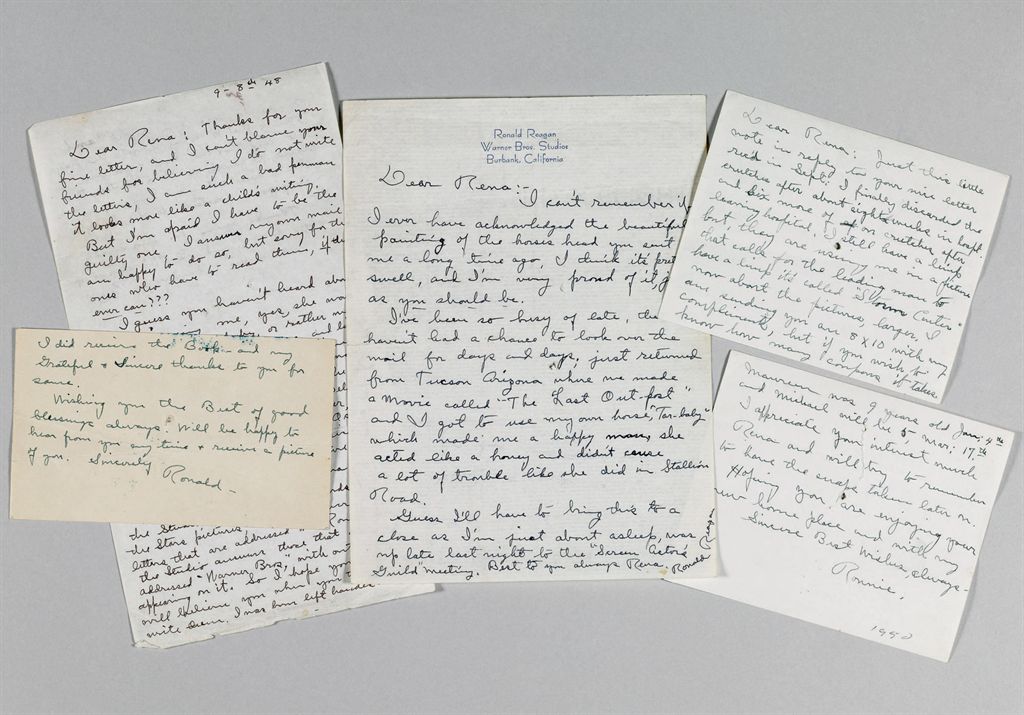 9-8th 48
Dear Rena: Thanks for your
fine letter, and I can't blame your
friends for believing I do not write
the letters, I am such a bad penman
it looks more like a child's writing.
But I'm afraid I have to be the
guilty one, I answer my own mail
am happy to do so, but sorry for the
ones who have to read them, if they
ever can???
I guess you haven't heard abou
me, yes, she wa
or rather m
the Stars pictures
letters that are addressed
the Studio answers those that
addressed "Warner Bros," with out
appearing on it. So I hope you
will believe you when you
write them. I was born left hander
I did receive the and my
Grateful & Sincere thanks to you for
same.
Wishing you the Best of good
blessings always. Will be happy to
hear from you anytime & receive a picture
of you. Sincerely
Ronald-
Ronald Reagan
Warner Bros. Studios
Burbank, California
Dear Rena:-
I can't remember if
I ever have acknowledged the beautiful
painting of the horses head you sent
me a long time ago, I think it's pret
swell, and I'm very proud of it, j
as you should be.
I've been so busy of late, tha
haven't had a chance to look over the
mail for days and days, just returned
from Tucson Arizona where we made
a Movie called "The Last Out-post"
and I got to use my own horse, "Tar-baby"
which made me a happy man, she
acted like a honey and didn't cause
a lot of trouble like she did in Stallion
Road.
Guess I'll have to bring this to a
close as I'm just about asleep, was
up late last night to the "Screen Actors
Guild" meeting. Best to you always Rena, Ronald
Reagan
Dear Rena: Just this little
note in reply to your nice letter
rec'd in Sept; I finally discarded the
crutches after about eight weeks in hospt.
and six more of on crutches after
leaving hospital, I still have a limp
but, they are using me in a picture
that calls for the leading man to
have a limp it's called Storm Center.
now about the pictures, larger, I
am sending you are 8X10 with my
compliments, but if you wish to
know how many coupons it takes.
Maureen was 9 years old Jan; 4th
and Michael will be 5 Mar; 17th
I appreciate your interest much
Rena and will try to remember
to have the snaps taken later on.
Hoping you are enjoying your
new home place and with my
Sincere Best Wishes, always-
Ronnie,
1950